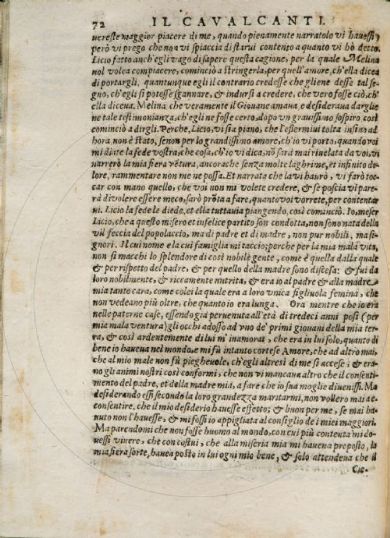 72 IL CAVALCANTI.
ureste maggior piacere di me, quando pienamente narratolo vi hauessi,
però vi prego che non vi spiaccia di starui contento a quanto vi hò detto.
Licio fatto anch'egli vago di sapere questa cagione, per la quale Melina
nol volea compiacere, cominciò a stringerla, per quell'amore, ch'ella dicea
di portargli, quantunque egli il contrario credesse che gliene desse tal se
gno, ch'egli si potesse sgannare, & indursi a credere, che vero fosse ciò, ch'
ella diceua. Melina che veramente il Giouane amaua, e desideraua dargli
ne tale testimonianza, ch'egli ne fosse certo, dopo vn grauissimo sospiro, così
cominciò a dirgli. Perche, Licio, vi sia piano, che l'essermi io tolta insino ad
hora non è stato, senon per lo grandissimo amore, ch'io vi porto, quando voi
mi diate la fede vostra, che cosa, ch'io vi dica, nō sarà mai riuelata da voi, vi
narrerò la mia fiera vētura, ancora che senza molte lagrime, et infinito do
lore, rammentare non me ne possa. Et narrata che la vi hauro, vi farò toc-
car con mano quello, che voi non mi volete credere, & se poscia vi pare-
rà di volere essere meco, sarò prōta a fare, quanto voi vorrete, per contentar
ui. Licio la fede le diede, et ella tuttauia piangendo, così cominciò. Io messer
Licio, che a questo misero et infelice partito son condotta, non sono nata della
vil feccia del popolaccio, ma di padre et di madre, non pur nobili, ma si-
gnori. Il cui nome e la cui famiglia mi taccio, perche per la mia mala vita,
non si macchi lo splendore di così nobile gente, come è quella dalla quale
& per rispetto del padre, & per quello della madre sono discesa: & fui da
loro nobilmente, & riccamente nutrita, & era io al padre & alla madre
mia tanto cara, come colei la quale era a loro vnica figliuola femina, che
non vedeano più oltre, che quanto io era lunga. Ora mentre che io era
nelle paterne case, essendo già peruenuta all'età di tredeci anni posi (per
mia mala ventura) gli occhi adosso ad vno de' primi giouani della mia ter-
ra, & così ardentemente di lui m'inamorai, che era in lui solo, quanto di
bene io haueua nel mondo. e mi fù intanto cortese Amore, che ad altro mai,
che al mio male non fù piegheuole, ch'egli altresi di me si accese: & era-
no gli animi nostri così conformi, che non vi mancaua altro che il consenti-
mento del padre, et della madre mia, a fare che io sua moglie diuenissi. Ma
desiderando essi secondo la loro grandezza maritarmi, non vollero mai ac
consentire, che il mio desiderio hauesse effetto; & buon per me, se mai ha-
uuto non l'hauesse, & mi fossi io appigliata al consiglio de i miei maggiori.
Ma parendomi che non fosse huomo al mondo, con cui più contenta mi do-
uessi viuere, che con costui, che alla miseria mia mi haueua proposto, la
mia fiera sorte, haueua posto in lui ogni mio bene, & solo attendeua che il